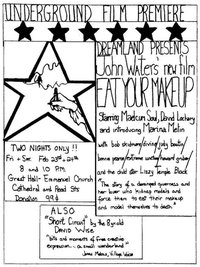 UNDERGROUND FILM PREMIERE
DREAMLAND PRESENTS
John Waters' new film
EAT YOUR MAKEUP
Starring Maelcum Soul, David Lochary
and introducing Marina Melin
with bob skidmore/divine/judy boutin/
bonnie pearce/extreme unction/howard gruber/
and the child star lizzy temple black
"The story of a deranged governess and
her lover who kidnap models and
force them to eat their makeup
and model themselves to death."
TWO NIGHTS ONLY!!
Fri + Sat Feb 23rd + 24th
8 and 10 P.M.
Great Hall - Emmanuel Church
Cathedral and Read Sts
Donation 99¢
ALSO
"Short Circuit" by the 8 yr old
David Wise
"bits and moments of free creative
expression... a small wonderland"
Jonas Mekas, Village Voice